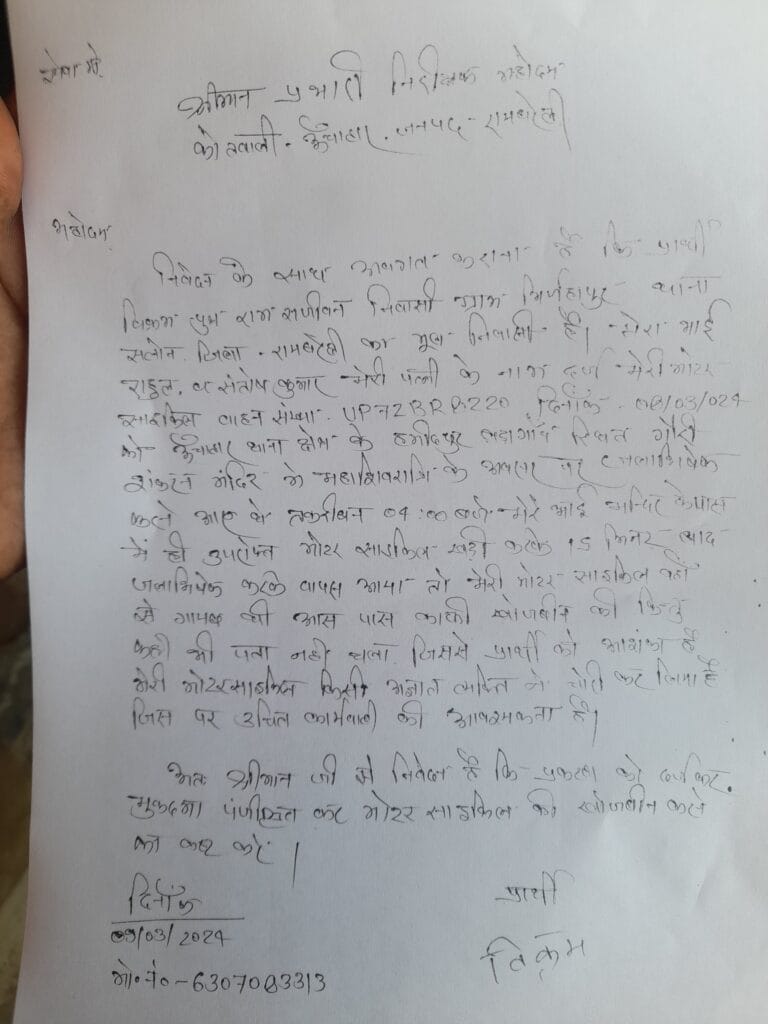 सेवा में,
श्रीमान प्रभारी निरीक्षक महोदय
कोतवाली - ऊँचाहार, जनपद - रायबरेली
महोदय,
निवेदन के साथ अवगत कराना है कि प्रार्थी
विक्रम पुत्र राम सजीवन निवासी ग्राम थाना
सलोन जिला - रायबरेली का मूल निवासी है। मेरा भाई
राहुल, व संतोष कुमार मेरी पत्नी के नाम दर्ज मेरी मोटर
साइकिल वाहन संख्या. दिनाँक 08/03/024
को ऊँचाहार थाना क्षेत्र के हमीदपुर बड़ागाँव स्थित गौरी
शंकरन मंदिर में महाशिवरात्रि के अवसर पर जलाभिषेक
करने आए थे तकरीबन 04:00 बजे मेरे भाई मन्दिर के पास
में ही उपरोक्त मोटर साइकिल खड़ी करके 15 मिनट बाद
जलाभिषेक करके वापस आया तो मेरी मोटर साइकिल वहाँ
से गायब थी आस पास काफी खोजबीन की किन्तु
कही भी पता नही चला. जिससे प्रार्थी को आशंका है
मेरी मोटरसाइकिल किसी अज्ञात व्यक्ति ने चोरी कर लिया है
जिस पर उचित कार्यवाही की आवश्यकता है।
अतः श्रीमान जी से निवेदन है कि प्रकरण को दर्ज कर.
मुकदमा पंजीकृत कर मोटर साइकिल की खोजबीन करने
का कष्ट करें।
दिनाँक
09/03/2024
मो०नं० - 6307083313
प्रार्थी
विक्रम